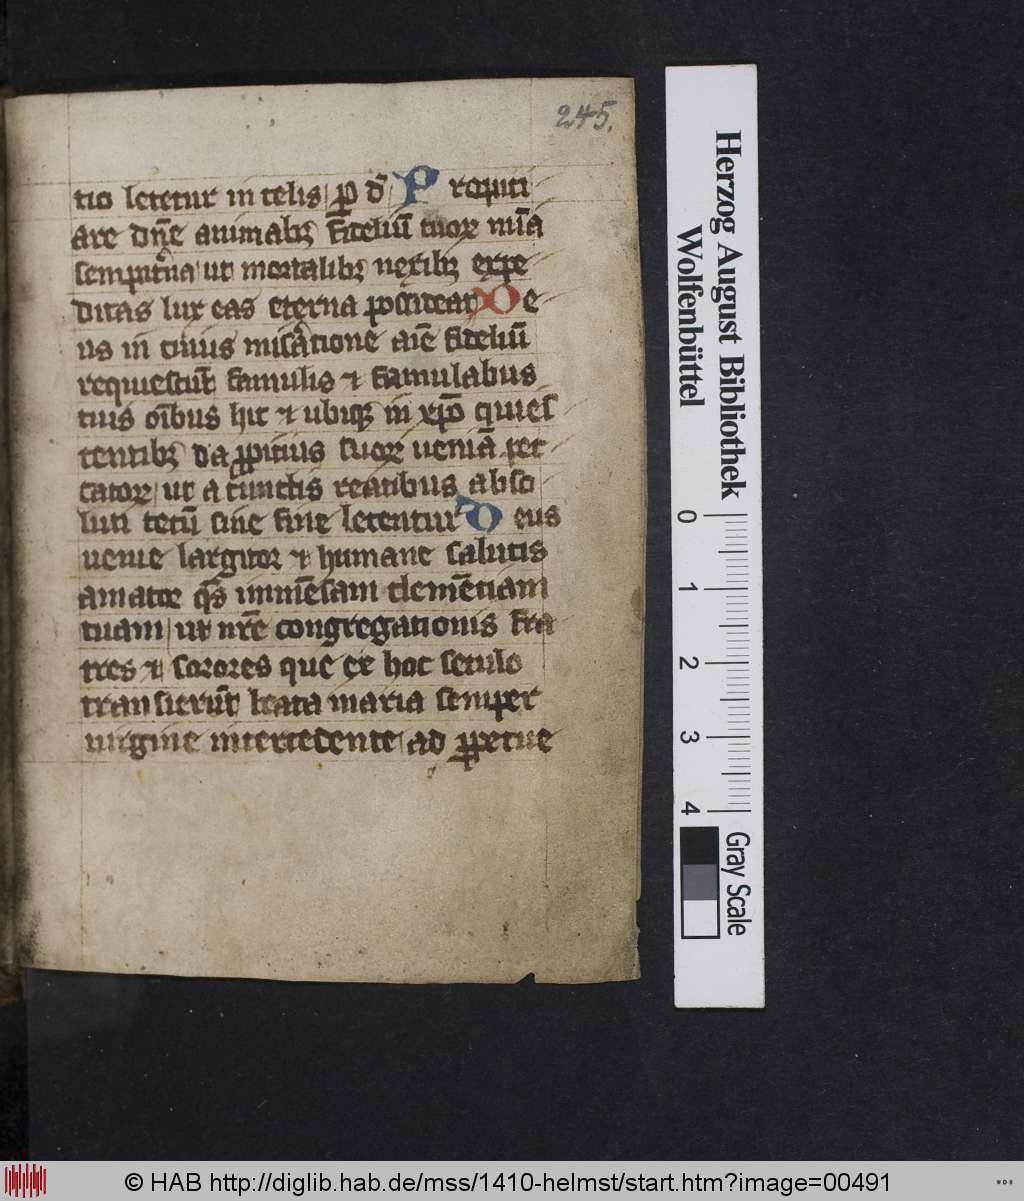 245.
tio letetur in celis p d P ropiti
are dn̄e animabꝫ fideliū tuoꝝ mīa
sempit̄na ut mortalibꝫ nexibꝫ expe
ditas lux eas eterna possideat D e
us in cuius misātione aīe fideliū
requiescūt famulis ⁊ famulabus
tuis oībus hic ⁊ ubiqꝫ in xp̄o quies
centibꝫ da ꝓpitius suoꝝ ueniā pec
catoꝝ ut a cunctis reatibus abso
luti tecū sine fine letentur D eus
uenie largitor ⁊ humane salutis
amator qs̄ immēsam clemētiam
tuam ut nr̄e congregationis fra
tres ⁊ sorores que ex hoc seculo
transierūt beata maria semper
uirgine intercedente ad ꝑpetue
Herzog August Bibliothek
Wolfenbüttel
0 1 2 3 4
Gray Scale
© HAB http://diglib.hab.de/mss/1410-helmst/start.htm?image=00491